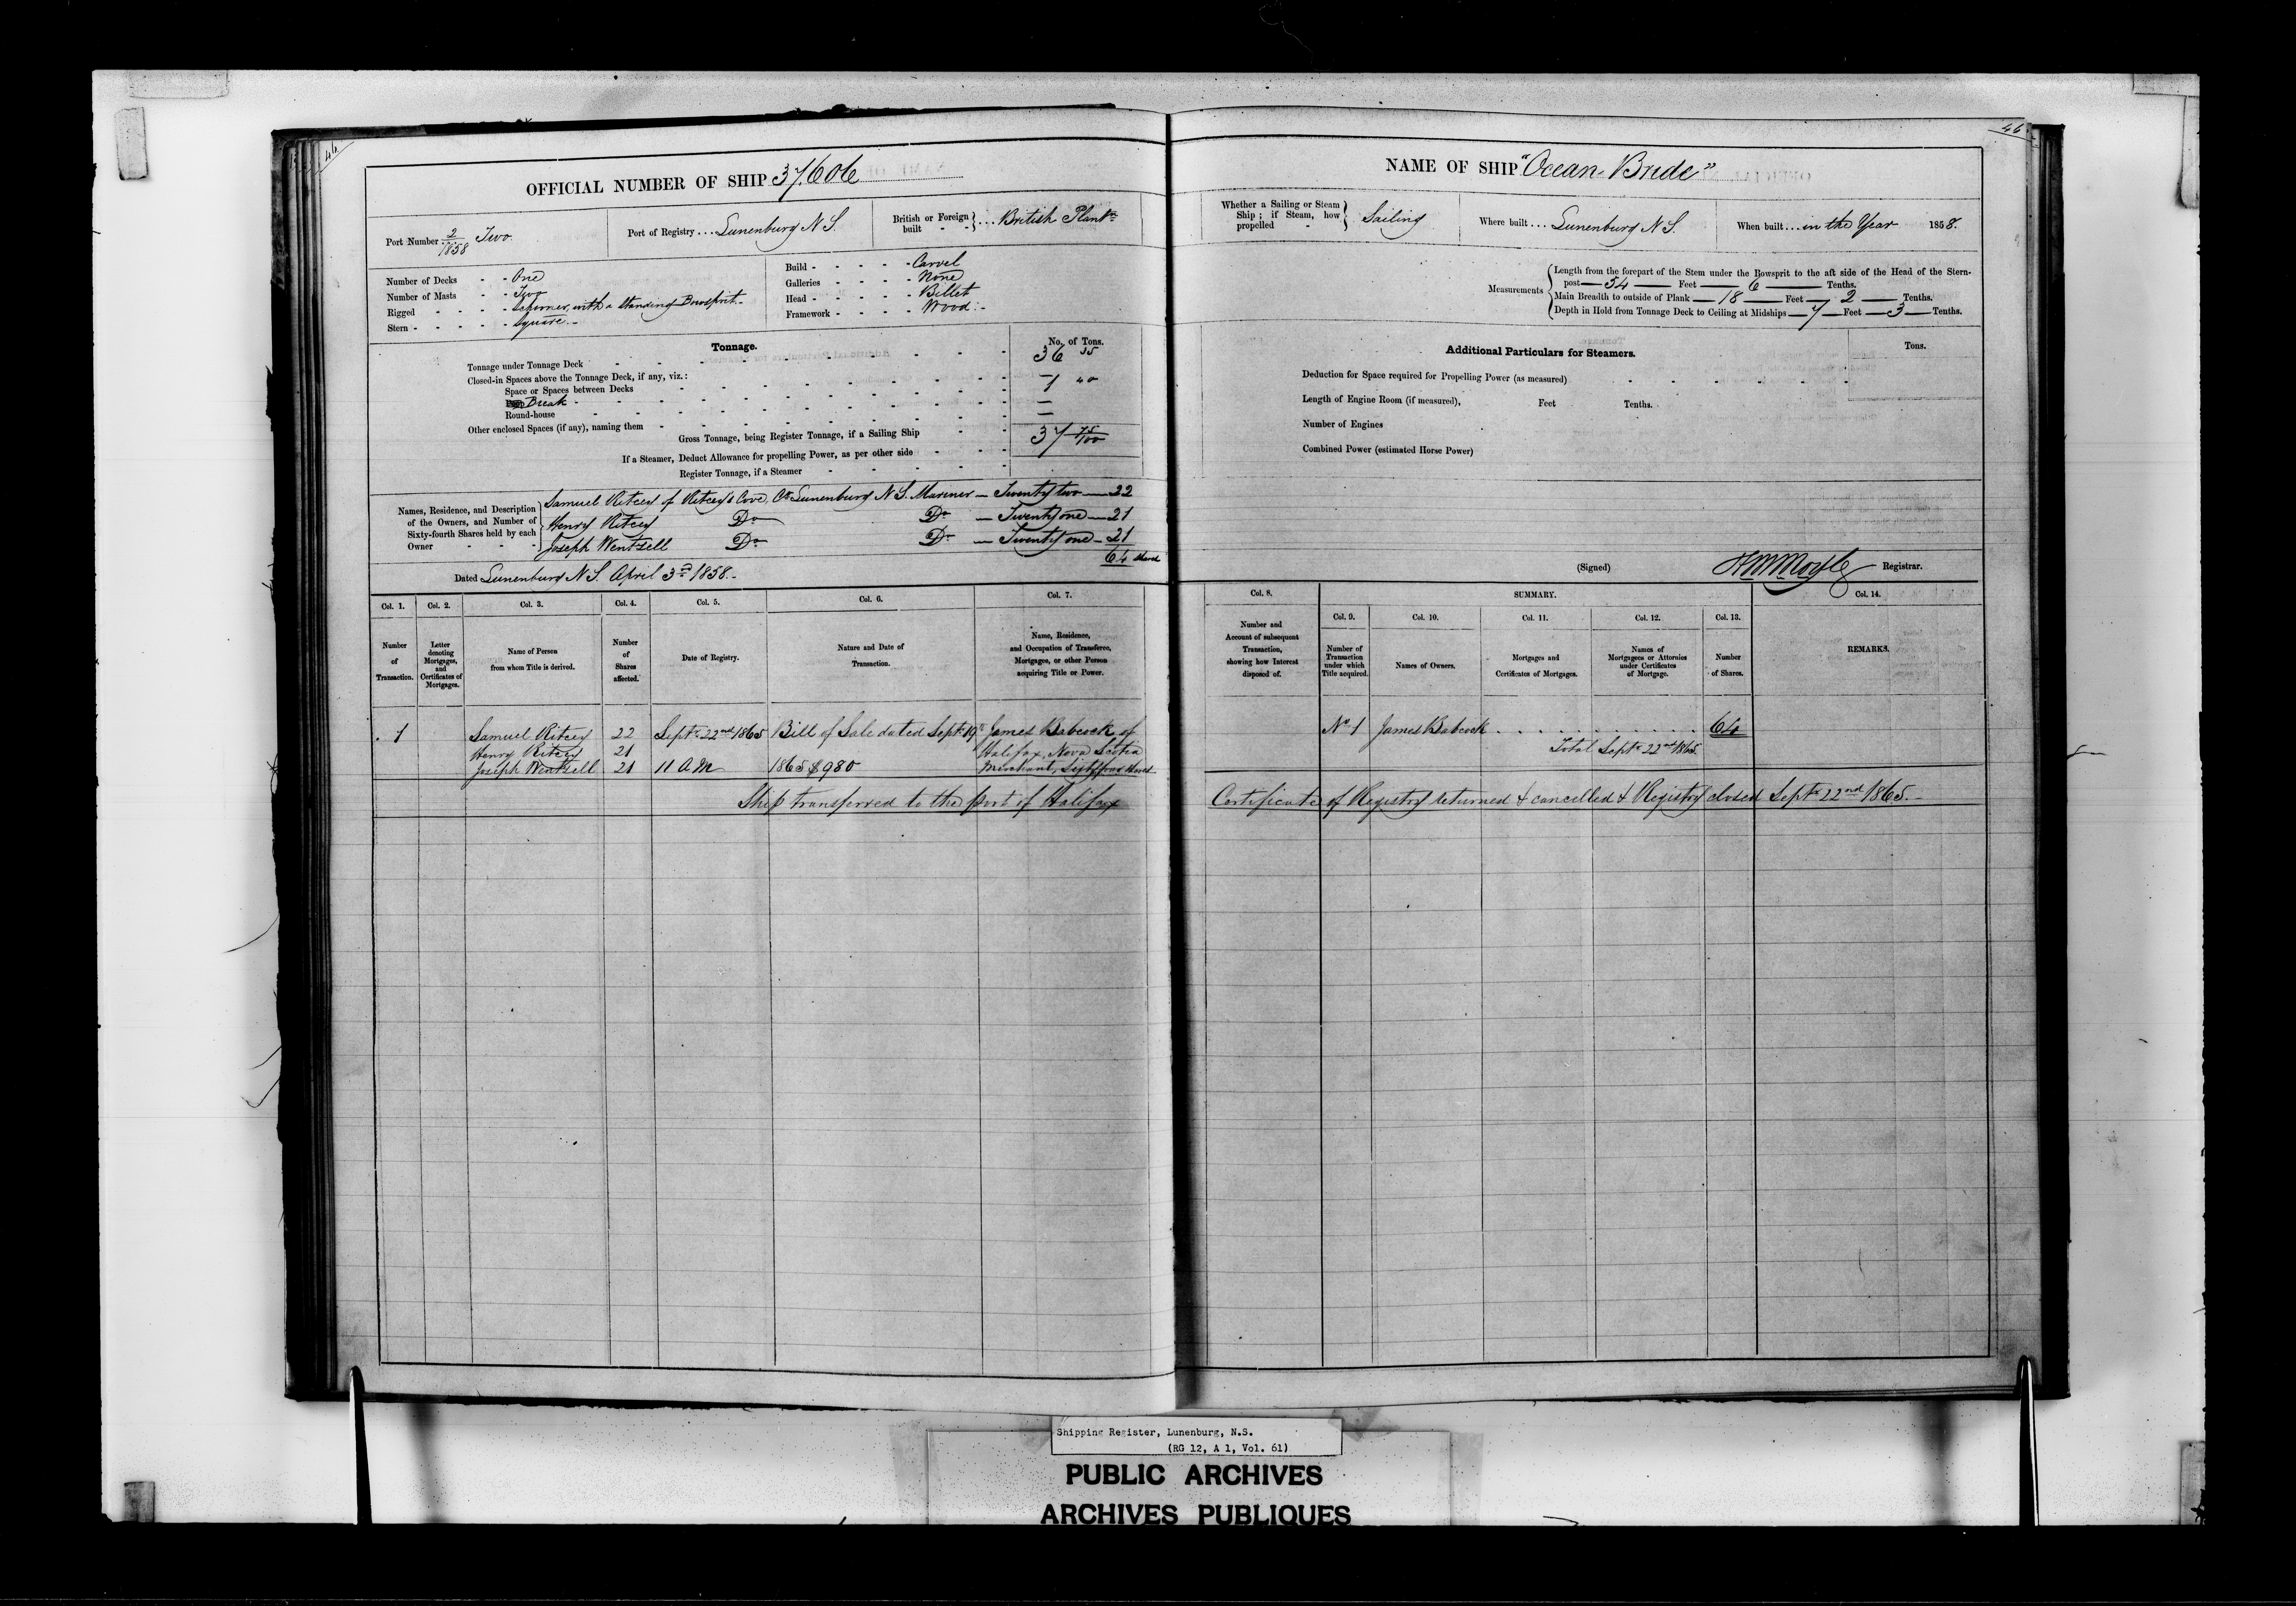 46
OFFICIAL NUMBER OF SHIP 37.606
Port Number 2/1858 Two
Port of Registry ... Lunenburg N S.
British or Foreign built ... British Plantn
Number of Decks - - One
Number of Masts - - Two
Rigged - - - Schooner, with a Standing Bowsprit.-
Stern - - - - - Square.-
Build - - - - - Carvel
Galleries - - - - None
Head - - - - - Billet
Framework - - - - Wood.-
Tonnage.
No. of Tons.
Tonnage under Tonnage Deck 36 35
Closed-in Spaces above the Tonnage Deck, if any, viz.:
Space or Spaces between Decks 1 40
Break
Round-house
Other enclosed Spaces (if any), naming them
Gross Tonnage, being Register Tonnage, if a Sailing Ship 37 75/100
If a Steamer, Deduct Allowance for propelling Power, as per other side
Register Tonnage, if a Steamer
Names, Residence, and Description of the Owners, and Number of Sixty-fourth Shares held by each Owner
Samuel Ritcey of Ritcey's Cove, Co Lunenburg N S. Mariner — Twenty two — 22
Henry Ritcey Do Do — Twenty one — 21
Joseph Wentzell Do Do — Twenty one — 21
64 shares
Dated Lunenburg N S. April 3rd 1858.-
Col. 1. Col. 2. Col. 3. Col. 4. Col. 5. Col. 6. Col. 7.
Number of Transaction.
Letter denoting Mortgages, and Certificates of Mortgages.
Name of Person from whom Title is derived.
Number of Shares affected.
Date of Registry.
Nature and Date of Transaction.
Name, Residence, and Occupation of Transferee, Mortgagee, or other Person acquiring Title or Power.
1 Samuel Ritcey 22 Septr 22nd 1865 Bill of Sale dated Septr 19th James Babcock of
Henry Ritcey 21 Halifax, Nova Scotia
Joseph Wentzell 21 11 A M 1865 $980 Merchant, Sixtyfour Shares
Ship transferred to the port of Halifax
46
NAME OF SHIP "Ocean Bride"
Whether a Sailing or Steam Ship; if Steam, how propelled - Sailing
Where built ... Lunenburg N S.
When built ... in the Year 1858.
Measurements
Length from the forepart of the Stem under the Bowsprit to the aft side of the Head of the Stern-
post — 54 — Feet — 6 — Tenths.
Main Breadth to outside of Plank — 18 — Feet — 2 — Tenths.
Depth in Hold from Tonnage Deck to Ceiling at Midships — 7 — Feet — 3 — Tenths.
Additional Particulars for Steamers.
Tons.
Deduction for Space required for Propelling Power (as measured)
Length of Engine Room (if measured), Feet Tenths.
Number of Engines
Combined Power (estimated Horse Power)
(Signed) Registrar.
Col. 8. SUMMARY. Col. 14.
Col. 9. Col. 10. Col. 11. Col. 12. Col. 13.
Number and Account of subsequent Transaction, showing how Interest disposed of.
Number of Transaction under which Title acquired.
Names of Owners.
Mortgages and Certificates of Mortgages.
Names of Mortgagees or Attornies under Certificates of Mortgage.
Number of Shares.
REMARKS.
No 1 James Babcock . . . . . . . . 64
Total Septr 22nd 1865.
Certificate of Registry returned & cancelled & Registry closed Septr 22nd 1865.-
Shipping Register, Lunenburg, N.S.
(RG 12, A 1, Vol. 61)
PUBLIC ARCHIVES
ARCHIVES PUBLIQUES